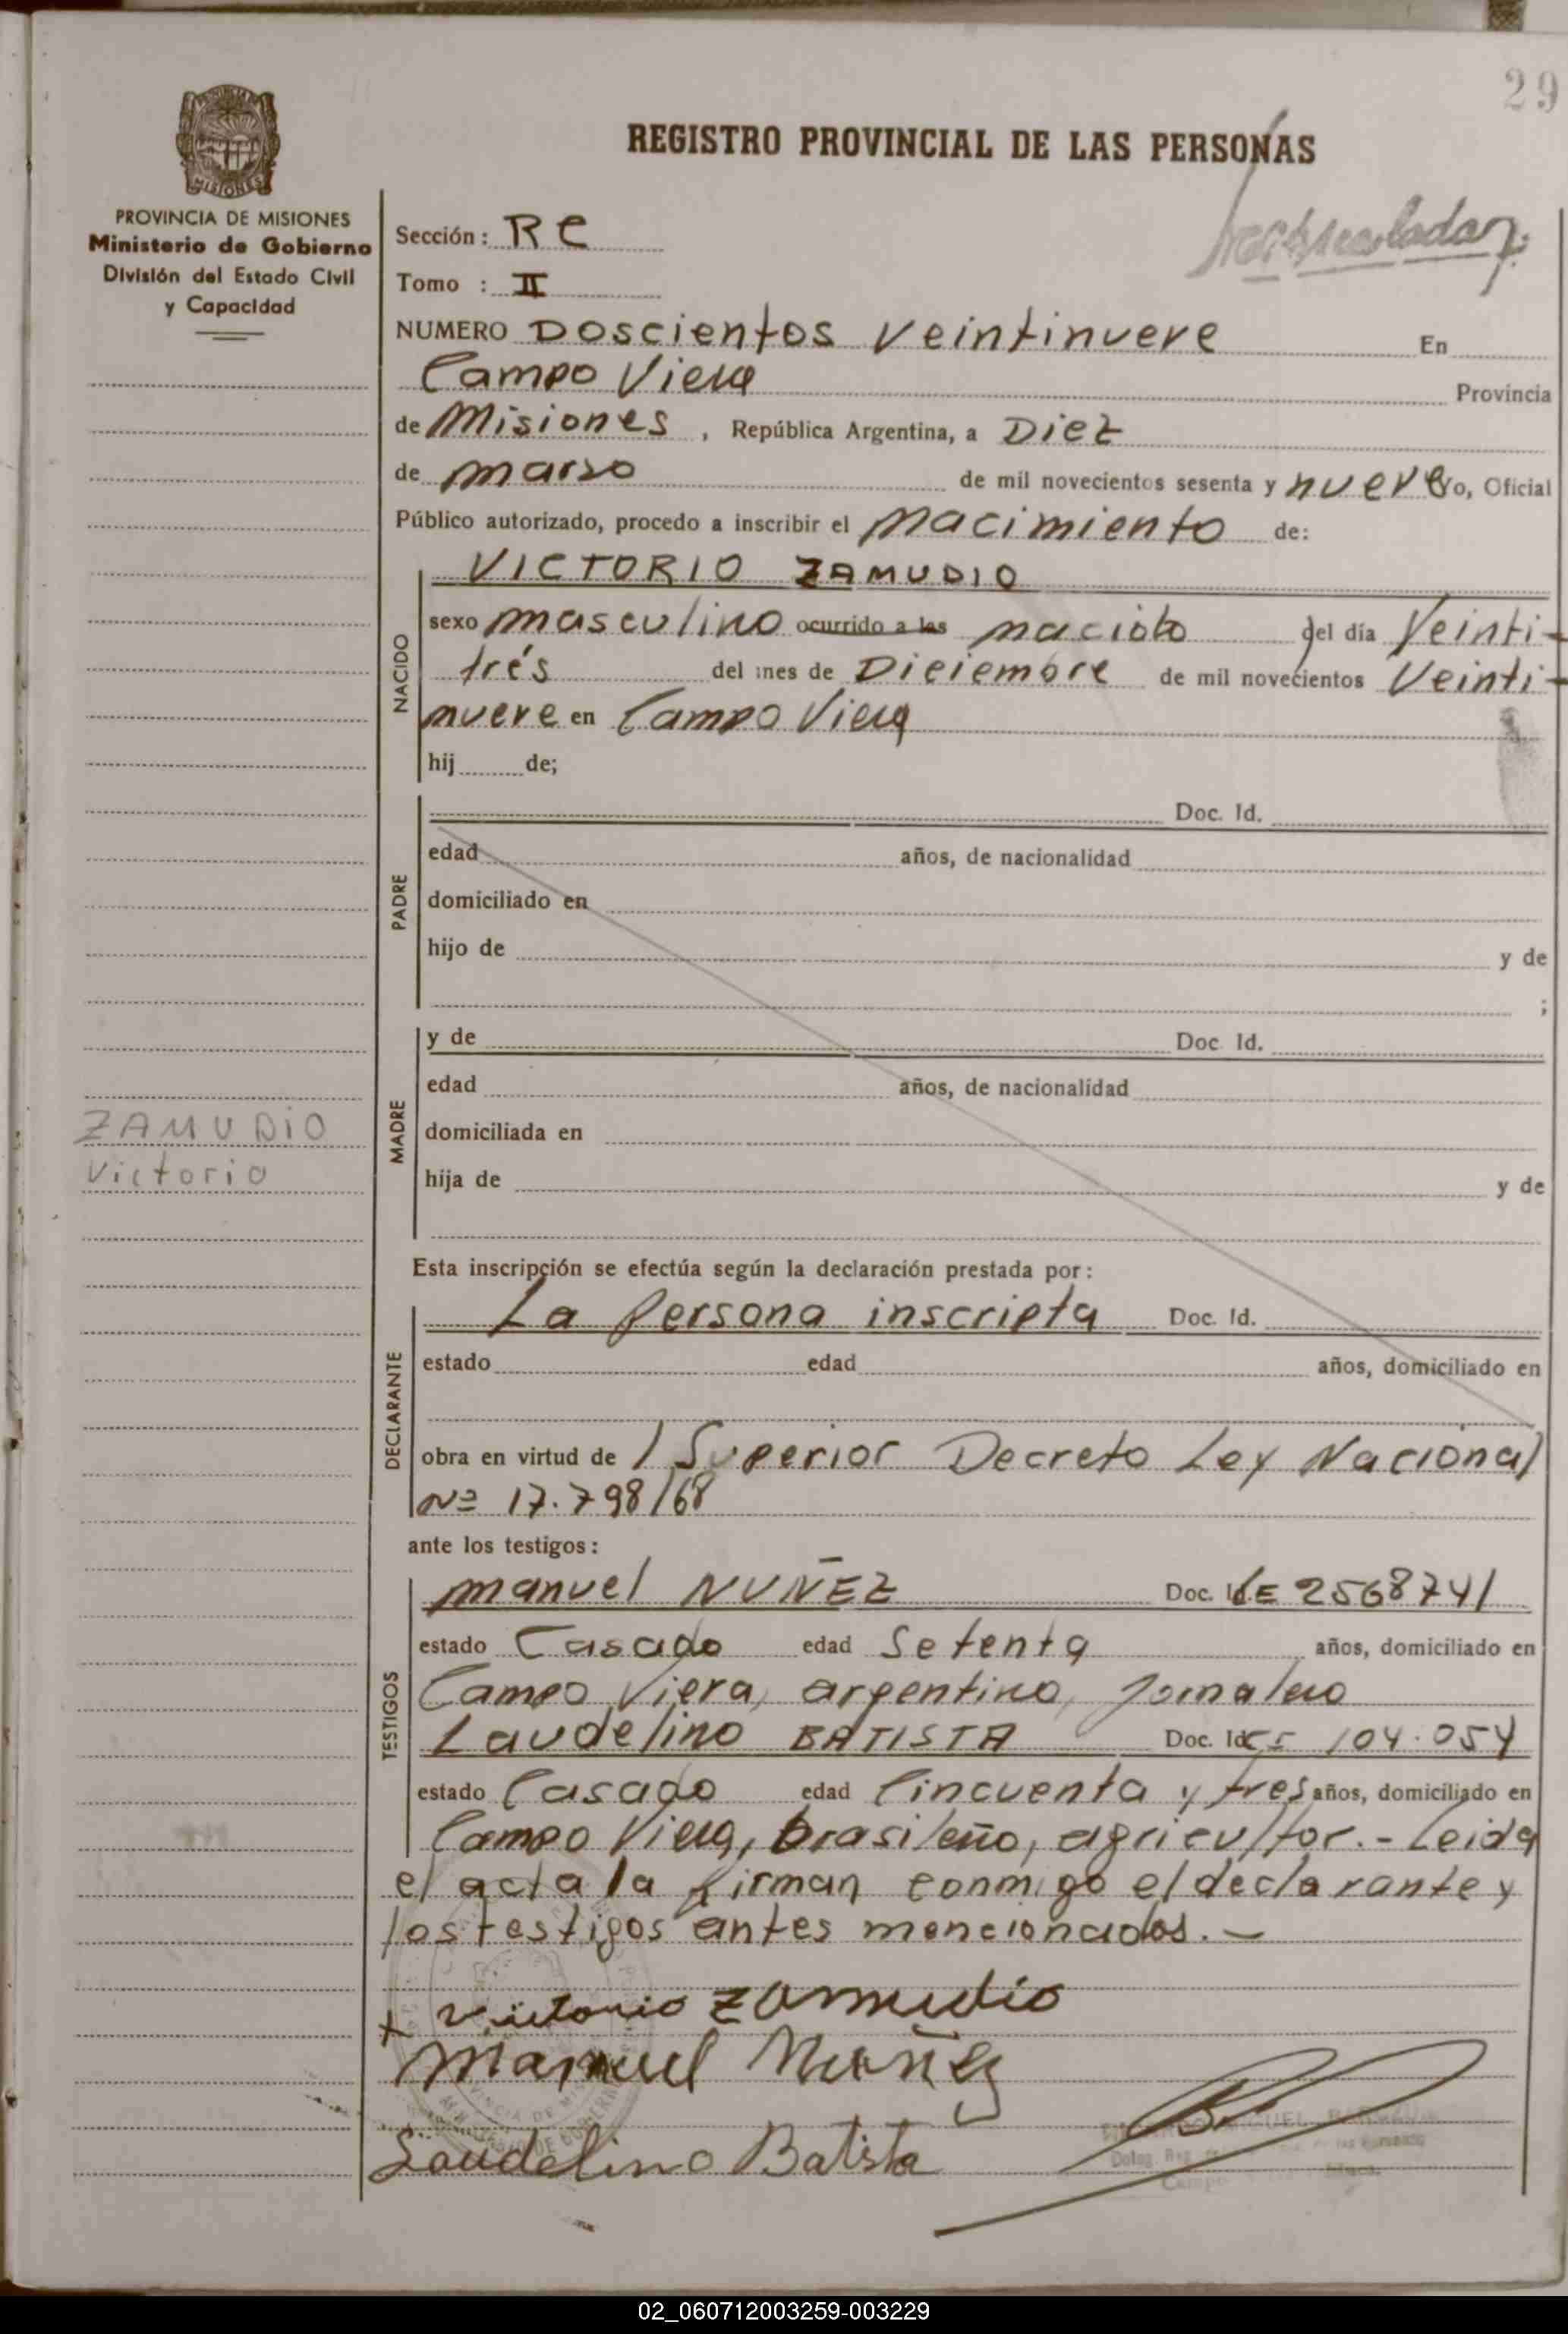 29
REGISTRO PROVINCIAL DE LAS PERSONAS
MISIONES
PROVINCIA DE MISIONES
Ministerio de Gobierno
División del Estado Civil
y Capacidad
Sección: Re
Tomo : II
NUMERO Doscientos Veintinueve En
Campo Viera Provincia
de Misiones, República Argentina, a Diez
de marso de mil novecientos sesenta y nueve yo, Oficial
Público autorizado, procedo a inscribir el nacimiento de:
NACIDO
VICTORIO ZAMUDIO
sexo masculino ocurrido a las nacido del día Veinti-
trés del mes de Diciembre de mil novecientos Veinti-
nueve en Campo Viera
hij de;
PADRE
Doc. Id.
edad años, de nacionalidad
domiciliado en
hijo de y de
;
MADRE
y de Doc. Id.
edad años, de nacionalidad
domiciliada en
hija de y de
ZAMUDIO
Victorio
Esta inscripción se efectúa según la declaración prestada por:
DECLARANTE
La persona inscripta Doc. Id.
estado edad años, domiciliado en
obra en virtud de / Superior Decreto Ley Nacional
Nº 17.798/68
ante los testigos:
TESTIGOS
Manuel NUÑEZ Doc. Id. LE 2568741
estado Casado edad Setenta años, domiciliado en
Campo Viera, argentino, Jornalero
Laudelino BATISTA Doc. Id. CI 104.054
estado Casado edad Cincuenta y tres años, domiciliado en
Campo Viera, brasileño, agricultor.- Leida
el acta la firman conmigo el declarante y
los testigos antes mencionados.-
x Victorio Zamudio
Manuel Nuñez
Laudelino Batista
02_060712003259-003229